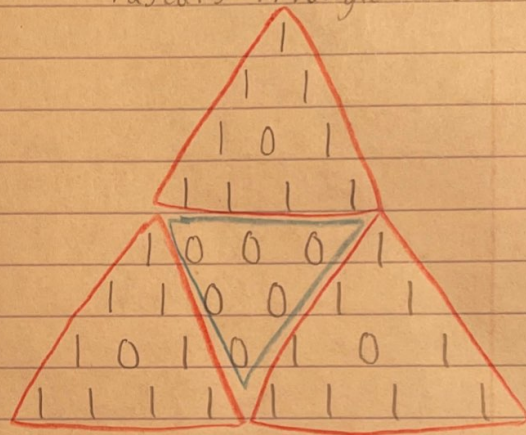 1
1 1
1 0 1
1 1 1 1
1 0 0 0 1
1 1 0 0 1 1
1 0 1 0 1 0 1
1 1 1 1 1 1 1 1